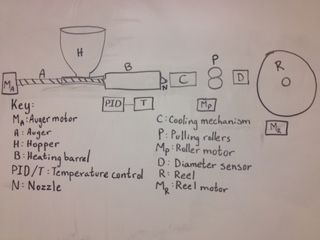 H
A
B
P
R
M_A
N
C
D
PID
T
M_P
M_R
Key:
M_A: Auger motor
A: Auger
H: Hopper
B: Heating barrel
PID/T: Temperature control
N: Nozzle
C: Cooling mechanism
P: Pulling rollers
M_P: Roller motor
D: Diameter sensor
R: Reel
M_R: Reel motor